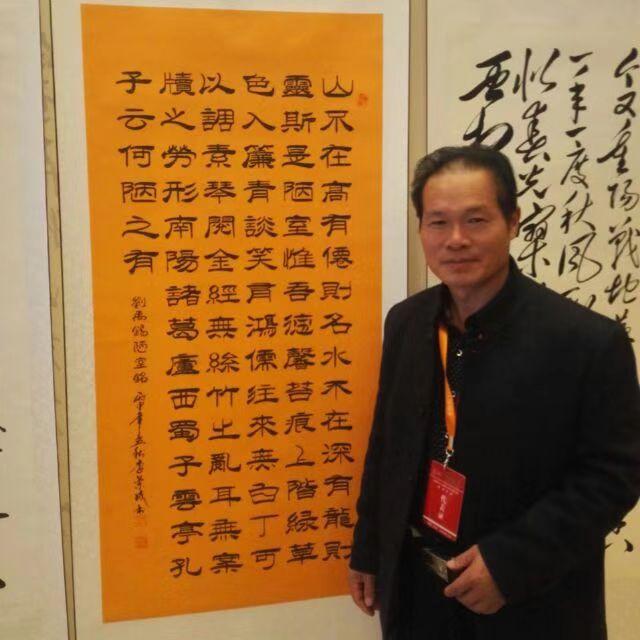 山不在高有僊則名水不在深有龍則
靈斯是陋室惟吾德馨苔痕上階綠草
色入簾青談笑有鴻儒往來無白丁可
以調素琴閱金經無絲竹之亂耳無案
牘之勞形南陽諸葛廬西蜀子雲亭孔
子云何陋之有
劉禹錫陋室銘
又重陽戰地
一年一度秋風
似春光寥